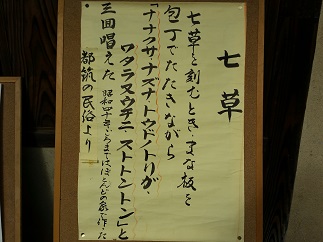 七草
七草を刻むとき、まな板を
包丁でたたきながら
「ナナクサ・ナズナ・トウドノトリガ、
ワタラヌウチニ、ストトントン」と
三回唱えた 昭和四十年ごろまではほとんどの家で作った
都筑の民俗より